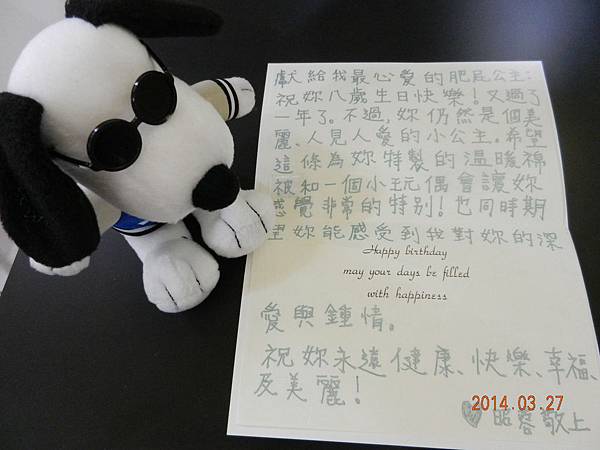 獻給我最心愛的肥屁公主：
祝妳八歲生日快樂！又過了
一年了。不過，妳仍然是個美
麗、人見人愛的小公主。希望
這條為妳特製的溫暖棉
被和一個小玩偶會讓妳
感覺非常的特別！也同時期
望妳能感受到我對妳的深
Happy birthday
may your days be filled
with happiness
愛與鍾情。
祝妳永遠健康、快樂、幸福、
及美麗！
♡昭蓉敬上
2014.03.27